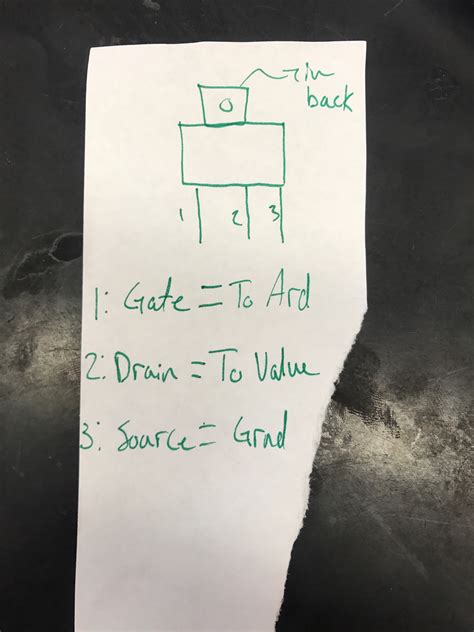 in
back
1 2 3
1: Gate = To Ard
2: Drain = To Value
3: Source = Grnd